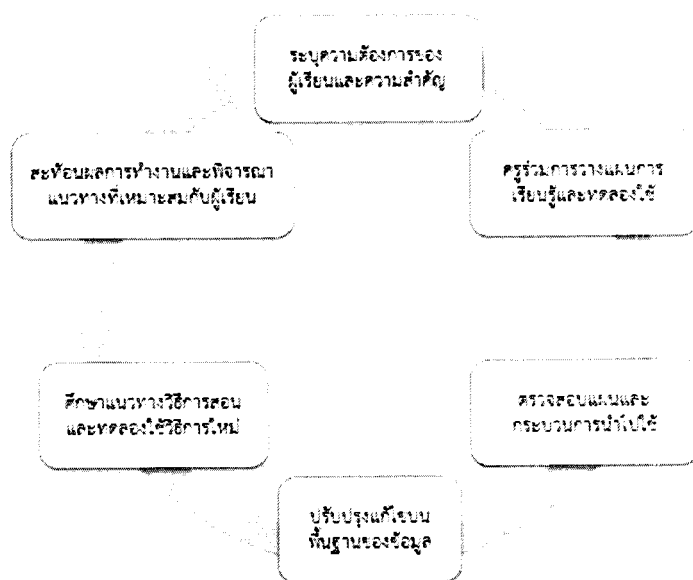 ระบุความต้องการของ
ผู้เรียนและความสำคัญ
ครูร่วมการวางแผนการ
เรียนรู้และทดลองใช้
ตรวจสอบแผนและ
กระบวนการนำไปใช้
ปรับปรุงแก้ไขบน
พื้นฐานของข้อมูล
ศึกษาแนวทางวิธีการสอน
และทดลองใช้วิธีการใหม่
สะท้อนผลการทำงานและพิจารณา
แนวทางที่เหมาะสมกับผู้เรียน